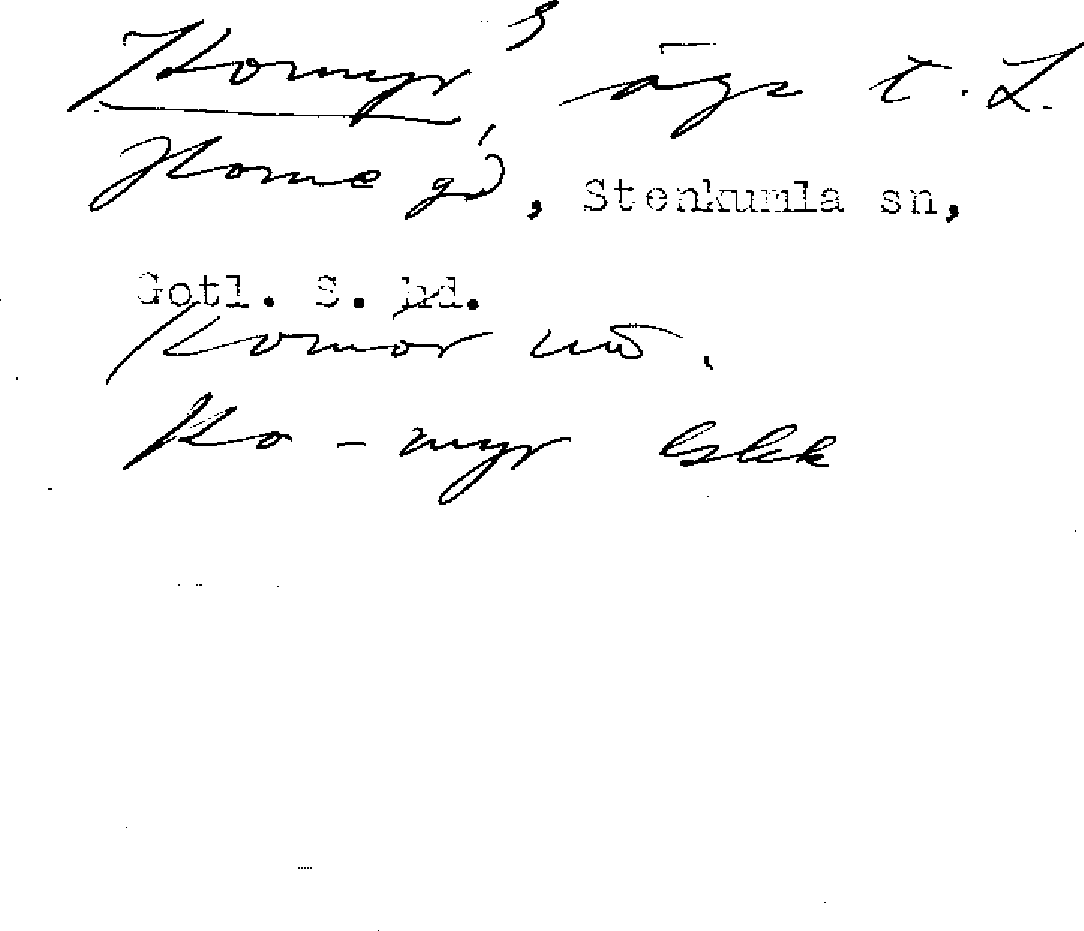 Komyr, äga t. L.
Home gd, Stenkumla sn,
Gotl. S. hd.
Komor
Ko-myr